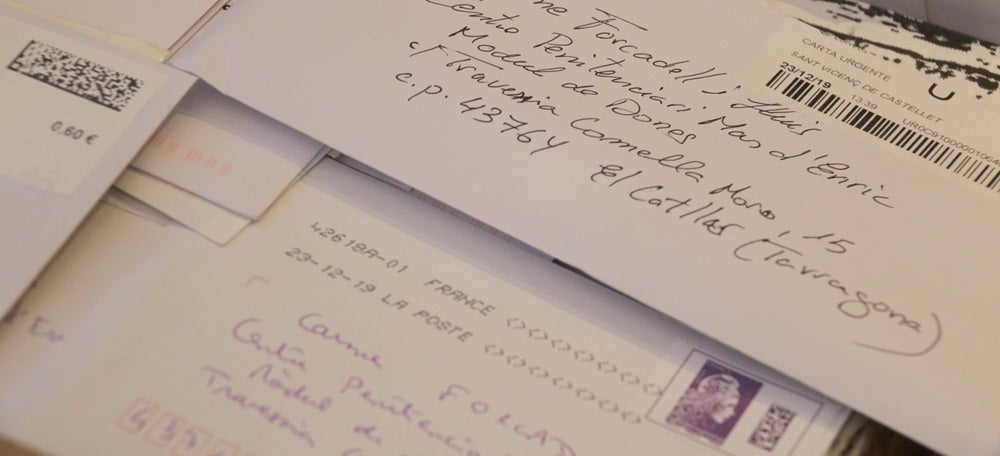 0.60 €
ne Forcadell i Lluís
Centre Penitenciari Mas d'Enric
Mòdul de Dones
c/ Travessia Comella Moro, 15
c.p. 43764 El Catllar (Tarragona)
CARTA URGENTE
SANT VICENÇ DE CASTELLET
23/12/19 13:39
U
42618A-01 FRANCE
23-12-19 LA POSTE
Carme FORCAD
Centre Penitencia
Mòdul de
Travessia